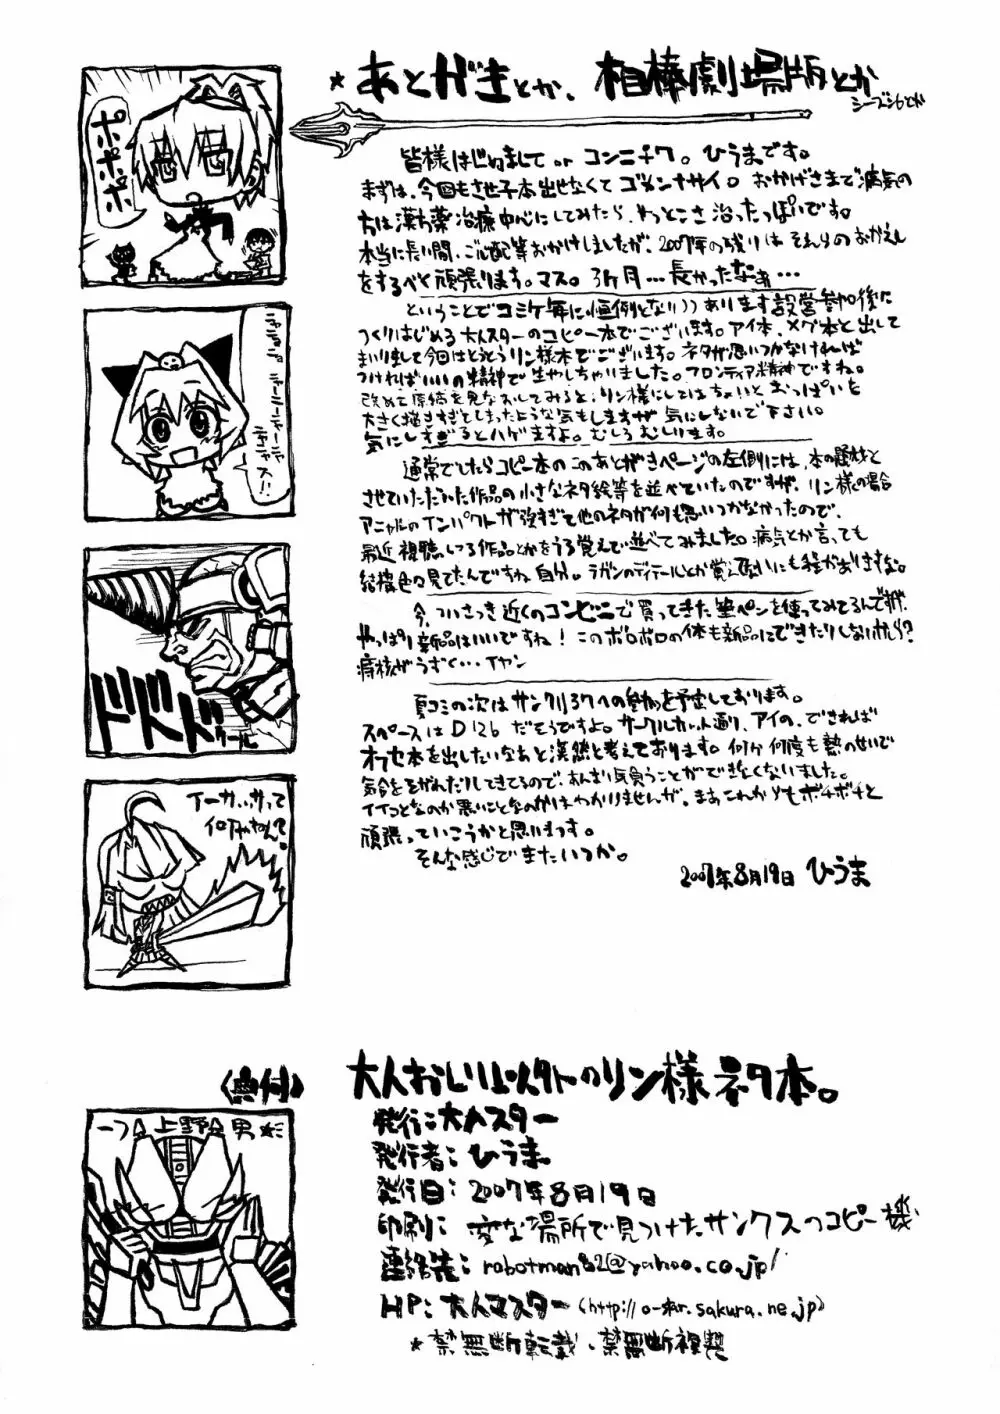 ★あとがきとか、相棒劇場版とか
シーズン6とか
皆様はじめまして or コンニチワ。ひうまです。
まずは、今回もさせ子本出せなくてゴメンナサイ。おかげさまで病気の
方は漢方薬治療中心にしてみたら、やっとこさ治ったっぽいです。
本当に長い間、ご心配等おかけしましたが、2007年の残りはそれらのおかえし
をするべく頑張ります。マス。3ヶ月…長かったなぁ…
ということでコミケ毎に恒例となりつつあります設営参加後に
つくりはじめる大人スターのコピー本でございます。アイ本、メグ本と出して
まいりまして今回はとうとうリン様本でございます。ネタが思いつかなければ
つければいいの精神で生やしちゃいました。フロンティア精神ですね。
改めて原稿を見なおしてみると、リン様にしてはちょいとおっぱいを
大きく描きすぎてしまったような気もしますが気にしないで下さい。
気にしすぎるとハゲますよ。むしろむしります。
通常でしたらコピー本のこのあとがきページの左側には、本の題材と
させていただいた作品の小さなネタ絵等を並べていたのですが、リン様の場合
アニャルのインパクトが強すぎて他のネタが何も思いつかなかったので、
最近視聴している作品とかをうる覚えで並べてみました。病気とか言っても
結構色々見てたんですね自分。ラガンのディテールとか覚えてないにも程がありすぎな。
今、ついさっき近くのコンビニで買ってきた筆ペンを使ってみてるんですが、
やっぱり新品はいいですね!このボロボロの体も新品にできたりしないかしら?
痔核がうずく…イヤン
夏コミの次はサンクリ37への参加を予定しております。
スペースは D12b だそうですよ。サークルカット通り、アイの、できれば
オフセ本を出したいなぁと漠然と考えております。何分何度も熱のせいで
気合をそがれたりしてきてるので、あんまり気負うことができなくないました。
イイことなのか悪いことなのかはわかりませんが、まあこれからもボチボチと
頑張っていこうかと思います。
そんな感じでまたいつか。
2007年8月19日 ひうま
ポポポポ
ニャーニャーニャーニャ
ニャス!!
ドドドド
ドリール
イーガッサって
何なん?
〈奥付〉
大人おしり以外のリン様ネタ本。
発行:大人スター
発行者:ひうま
発行日:2007年8月19日
印刷:変な場所で見つけたサンクスのコピー機
連絡先:robotman82@yahoo.co.jp
HP:大人マスター(http://o-star.sakura.ne.jp)
★禁無断転載、禁無断複製
上野 男